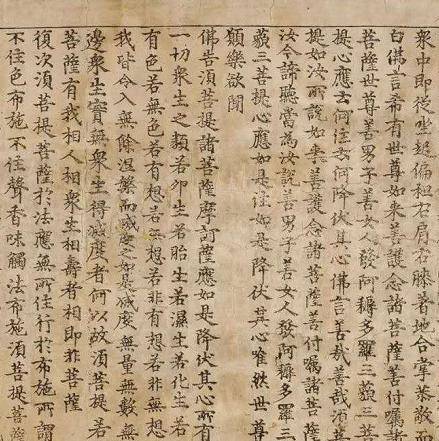 衆中即從坐起偏袒右肩右膝著地合掌恭敬而
白佛言希有世尊如來善護念諸菩薩善付囑諸
菩薩世尊善男子善女人發阿耨多羅三藐三菩
提心應云何住云何降伏其心佛言善哉善哉須菩
提如汝所說如來善護念諸菩薩善付囑諸菩薩
汝今諦聽當為汝說善男子善女人發阿耨多羅三
藐三菩提心應如是住如是降伏其心唯然世尊
願樂欲聞
佛告須菩提諸菩薩摩訶薩應如是降伏其心所有
一切衆生之類若卵生若胎生若濕生若化生若
有色若無色若有想若無想若非有想非無想
我皆令入無餘涅槃而滅度之如是滅度無量無數無
邊衆生實無衆生得滅度者何以故須菩提若
菩薩有我相人相衆生相壽者相即非菩薩
復次須菩提菩薩於法應無所住行於布施所謂
不住色布施不住聲香味觸法布施須菩提菩薩